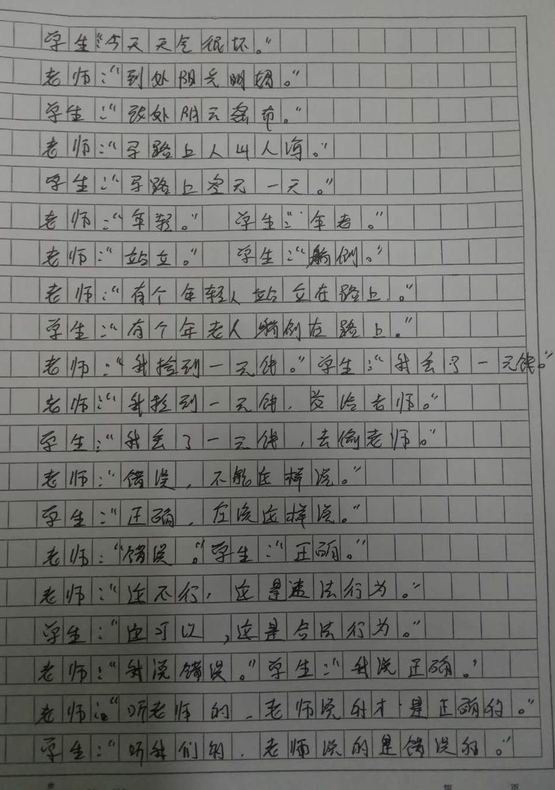 学生“今天天气很坏。”
老师：“到处阳光明媚。”
学生：“到处阴云密布。”
老师：“马路上人山人海。”
学生：“马路上空无一人。”
老师：“年轻。” 学生：“年老。”
老师：“站立。” 学生：“躺倒。”
老师：“有个年轻人站立在路上。”
学生：“有个年老人躺倒在路上。”
老师：“我捡到一元钱。”学生：“我丢了一元钱。”
老师：“我捡到一元钱，交给老师。”
学生：“我丢了一元钱，去偷老师。”
老师：“错误，不能这样说。”
学生：“正确，应该这样说。”
老师：“错误。”学生：“正确。”
老师：“这不行，这是违法行为。”
学生：“这可以，这是合法行为。”
老师：“我说错误。”学生：“我说正确。”
老师：“听老师的，老师说的才是正确的。”
学生：“听我们的，老师说的是错误的。”